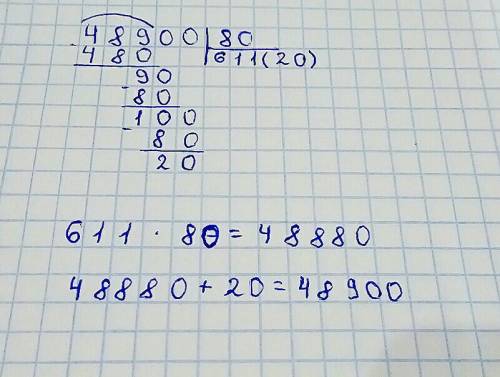 48900 | 80
- 480 611(20)
90
- 80
100
- 80
20
611 · 80 = 48880
48880 + 20 = 48900